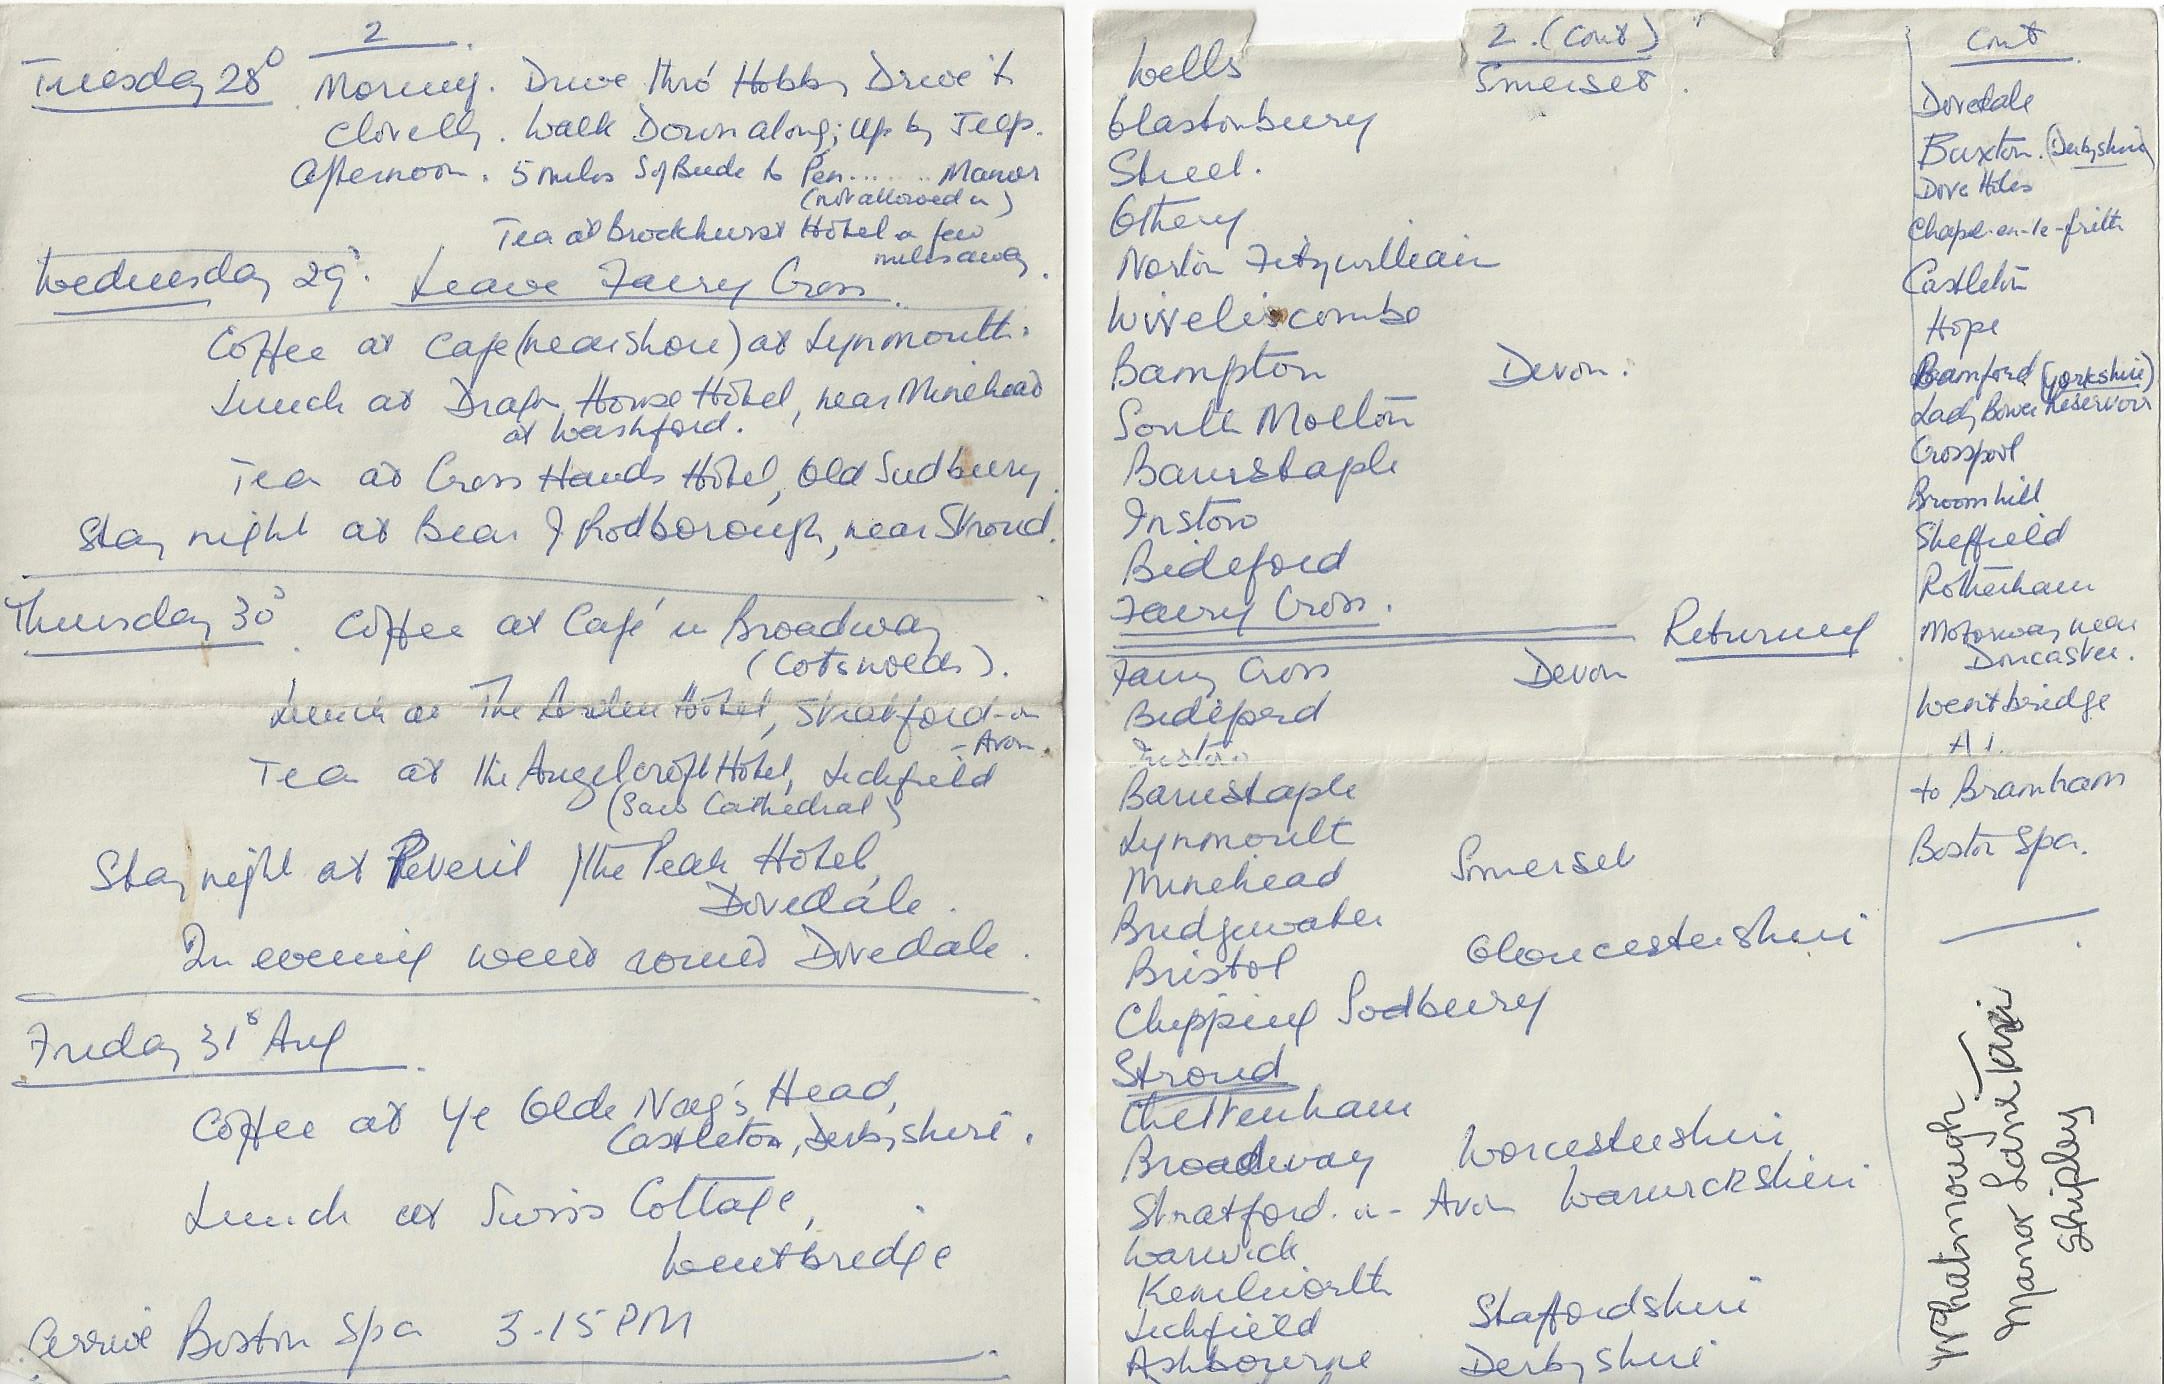 2.
Tuesday 28º Morning. Drive thró Hobby Drive to
Clovelly. Walk Down along; Up by Jeep.
Afternoon. 5 miles S of Bude to Pen...... Manor
(not allowed in)
Tea at Brockhurst Hotel a few
miles away.
Wednesday 29º. Leave Fairy Cross.
Coffee at Cafe (near shore) at Lynmouth.
Lunch at Dragon House Hotel, near Minehead
at Washford.
Tea at Cross Hands Hotel, Old Sudbury.
Stay night at Bear of Rodborough, near Stroud.
Thursday 30º. Coffee at Café in Broadway
(Cotswolds).
Lunch at The Arden Hotel, Stratford-on
-Avon.
Tea at The Angelcroft Hotel, Lichfield
(Saw Cathedral)
Stay night at Peveril of the Peak Hotel,
Dovedale.
In evening went round Dovedale.
Friday 31st Aug.
Coffee at Ye Olde Nag's Head,
Castleton, Derbyshire.
Lunch at Swiss Cottage,
Wentbridge
Arrive Boston Spa 3-15 PM
2. (Cont)
Wells Somerset.
Glastonbury
Street.
Othery
Norton Fitzwilliam
Wiveliscombe
Bampton Devon.
South Molton
Barnstaple
Instow
Bideford
Fairy Cross.
Returning
Fairy Cross Devon
Bideford
Instow
Barnstaple
Lynmouth
Minehead Somerset
Bridgewater
Bristol Gloucestershire
Chipping Sodbury
Stroud
Cheltenham
Broadway Worcestershire
Stratford-on-Avon Warwickshire
Warwick
Kenilworth
Lichfield Staffordshire
Ashbourne Derbyshire
Cont
Dovedale
Buxton. (Derbyshire)
Dove Holes
Chapel-en-le-frith
Castleton
Hope
Bamford (Yorkshire)
Lady Bower Reservoir
Crosspool
Broomhill
Sheffield
Rotherham
Motorway near
Doncaster.
Wentbridge
A1.
to Bramham
Boston Spa.
Whatmough
Manor Lane Taxi
Shipley